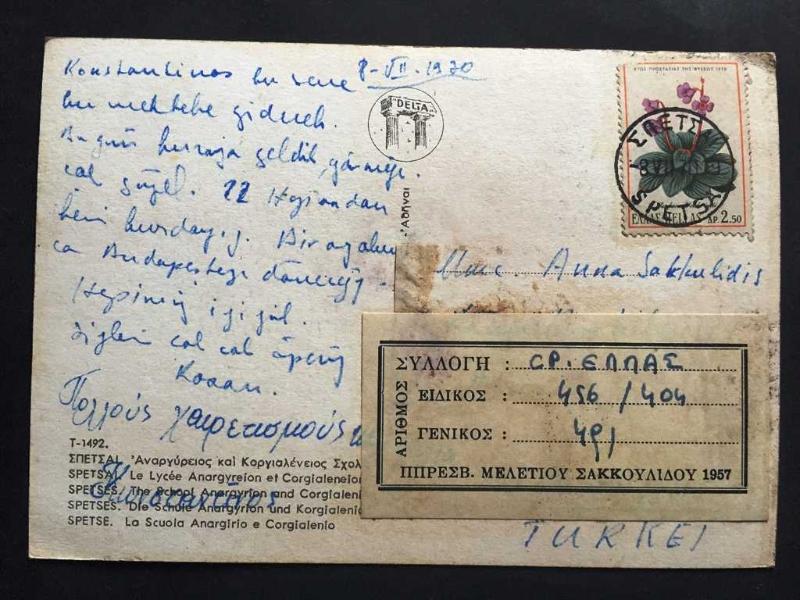 Konstantinos bu sene 8-VII.1970
bu mektebe gidecek.
Bugün buraya geldik,
çok güzel. 22 Hazirandan
beri burdayız. Bir aya
Budapesteye
Hepiniz iyi
çok çok öperiz
Πολλούς χαιρετισμούς
Κωνσταντίνος
DELTA
Ἀθῆναι
ΣΠΕΤΣ
8 VII
SPETSA
ΕΛΛΑΣ HELLAS ΔΡ 2.50
Mme. Anna Sakkulidis
ΑΡΙΘΜΟΣ
ΣΥΛΛΟΓΗ : CP. ΕΛΛΑΣ
ΕΙΔΙΚΟΣ : 456 / 404
ΓΕΝΙΚΟΣ : 491
ΠΠΡΕΣΒ. ΜΕΛΕΤΙΟΥ ΣΑΚΚΟΥΛΙΔΟΥ 1957
T-1492.
ΣΠΕΤΣΑΙ. Ἀναργύρειος καὶ Κοργιαλένειος Σχολ
SPETSAI. Le Lycée Anargyreion et Corgialeneio
SPETSES. The School Anargyrion and Corgialeni
SPETSES. Die Schule Anargyrion und Korgialenio
SPETSE. La Scuola Anargirio e Corgialenio
TURKEI